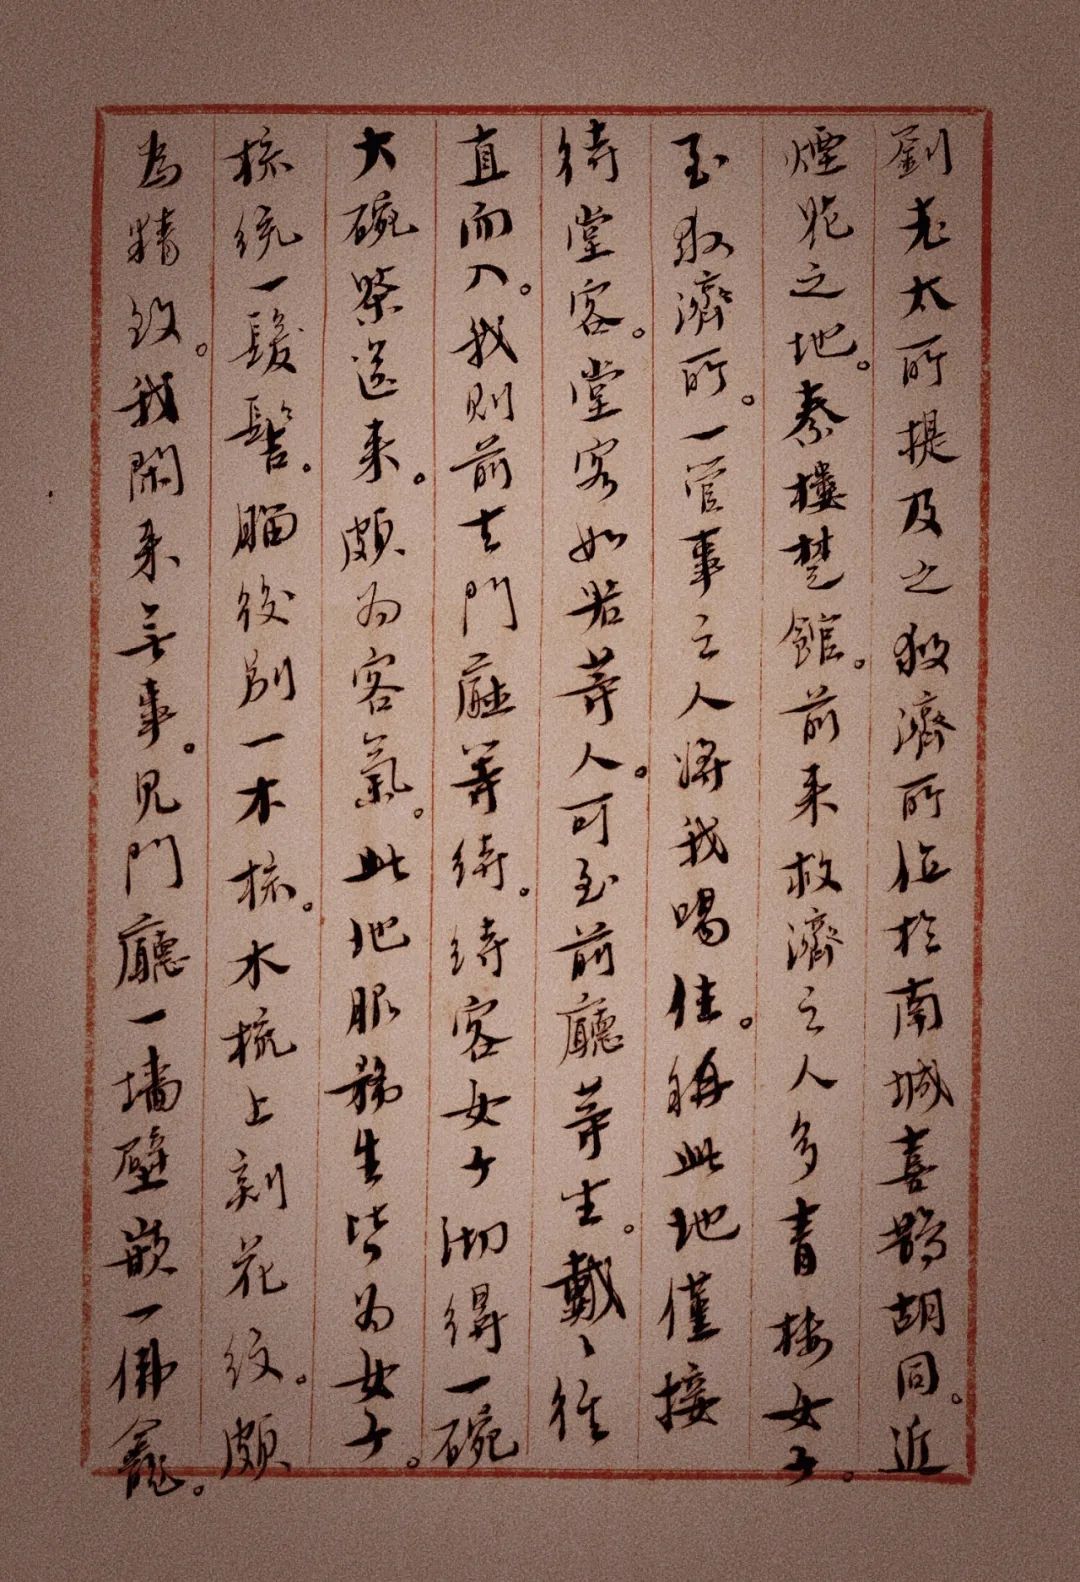 劉老太所提及之救濟所位於南城喜鵲胡同。近
煙花之地。秦樓楚館。前來救濟之人多青楼女子。
至救濟所。一管事之人將我喝住。稱此地僅接
待堂客。堂客如若等人。可至前廳等坐。戴戴往
直而入。我則前去門廳等待。待客女子沏得一碗
大碗茶送来。頗为客氣。此地服務生皆为女子。
梳统一髮髻。腦後别一木梳。木梳上刻花纹。頗
為精致。我閑来無事。见門廳一墙壁嵌一佛龕。